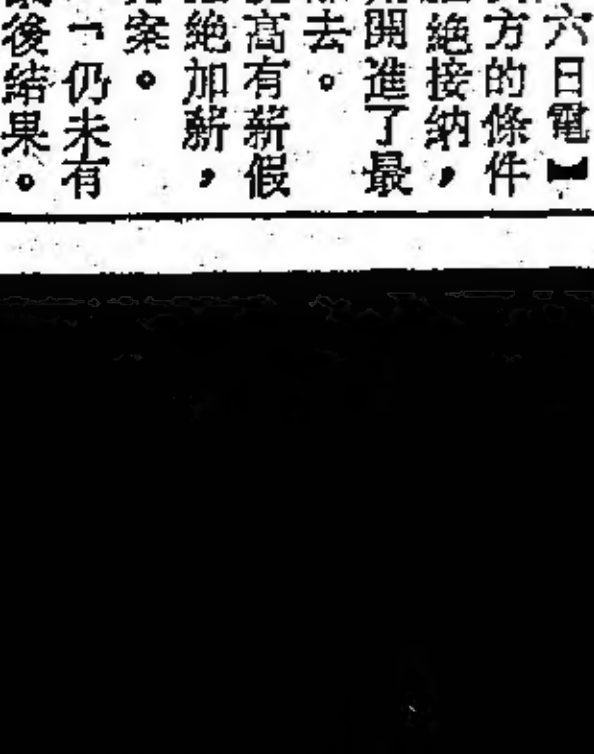 六日電】
方的條件
絕接納，
開進了最
去。
高有薪假
絕加薪，
案。
「仍未有
後結果。